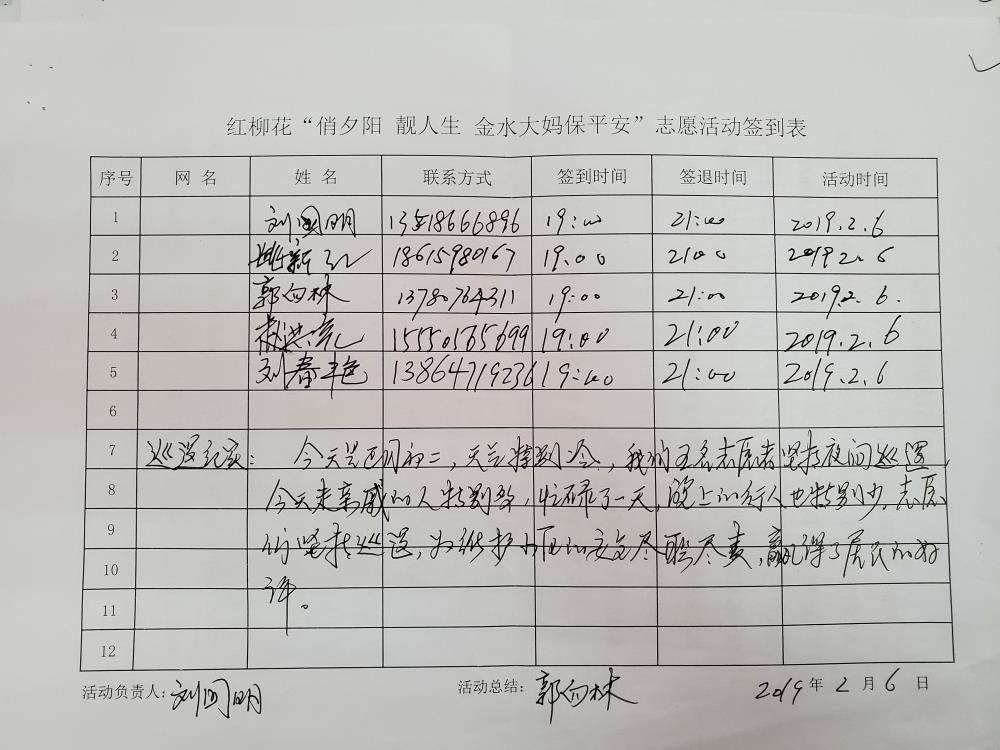 红柳花“俏夕阳 靓人生 金水大妈保平安”志愿活动签到表
序号 网 名 姓 名 联系方式 签到时间 签退时间 活动时间
1 刘国明 19:00 21:00 2019.2.6
2 18615980167 19.00 2100 2019 2.6
3 郭向林 13780764311 19:00 21:00 2019.2.6.
4 19:00 21:00 2019.2.6
5 刘春艳 13864719236 19:00 21:00 2019.2.6
6
7 巡逻纪实: 今天是正月初二,天气特别冷,我们五名志愿者坚持夜间巡逻,
8 今天来亲戚的人特别多,忙碌了一天,晚上的行人也特别少,志愿
9 们坚持巡逻,为维护小区的安全尽职尽责,赢得了居民的好
10
11 评。
12
活动负责人: 刘国明 活动总结: 郭向林 2019 年 2 月 6 日